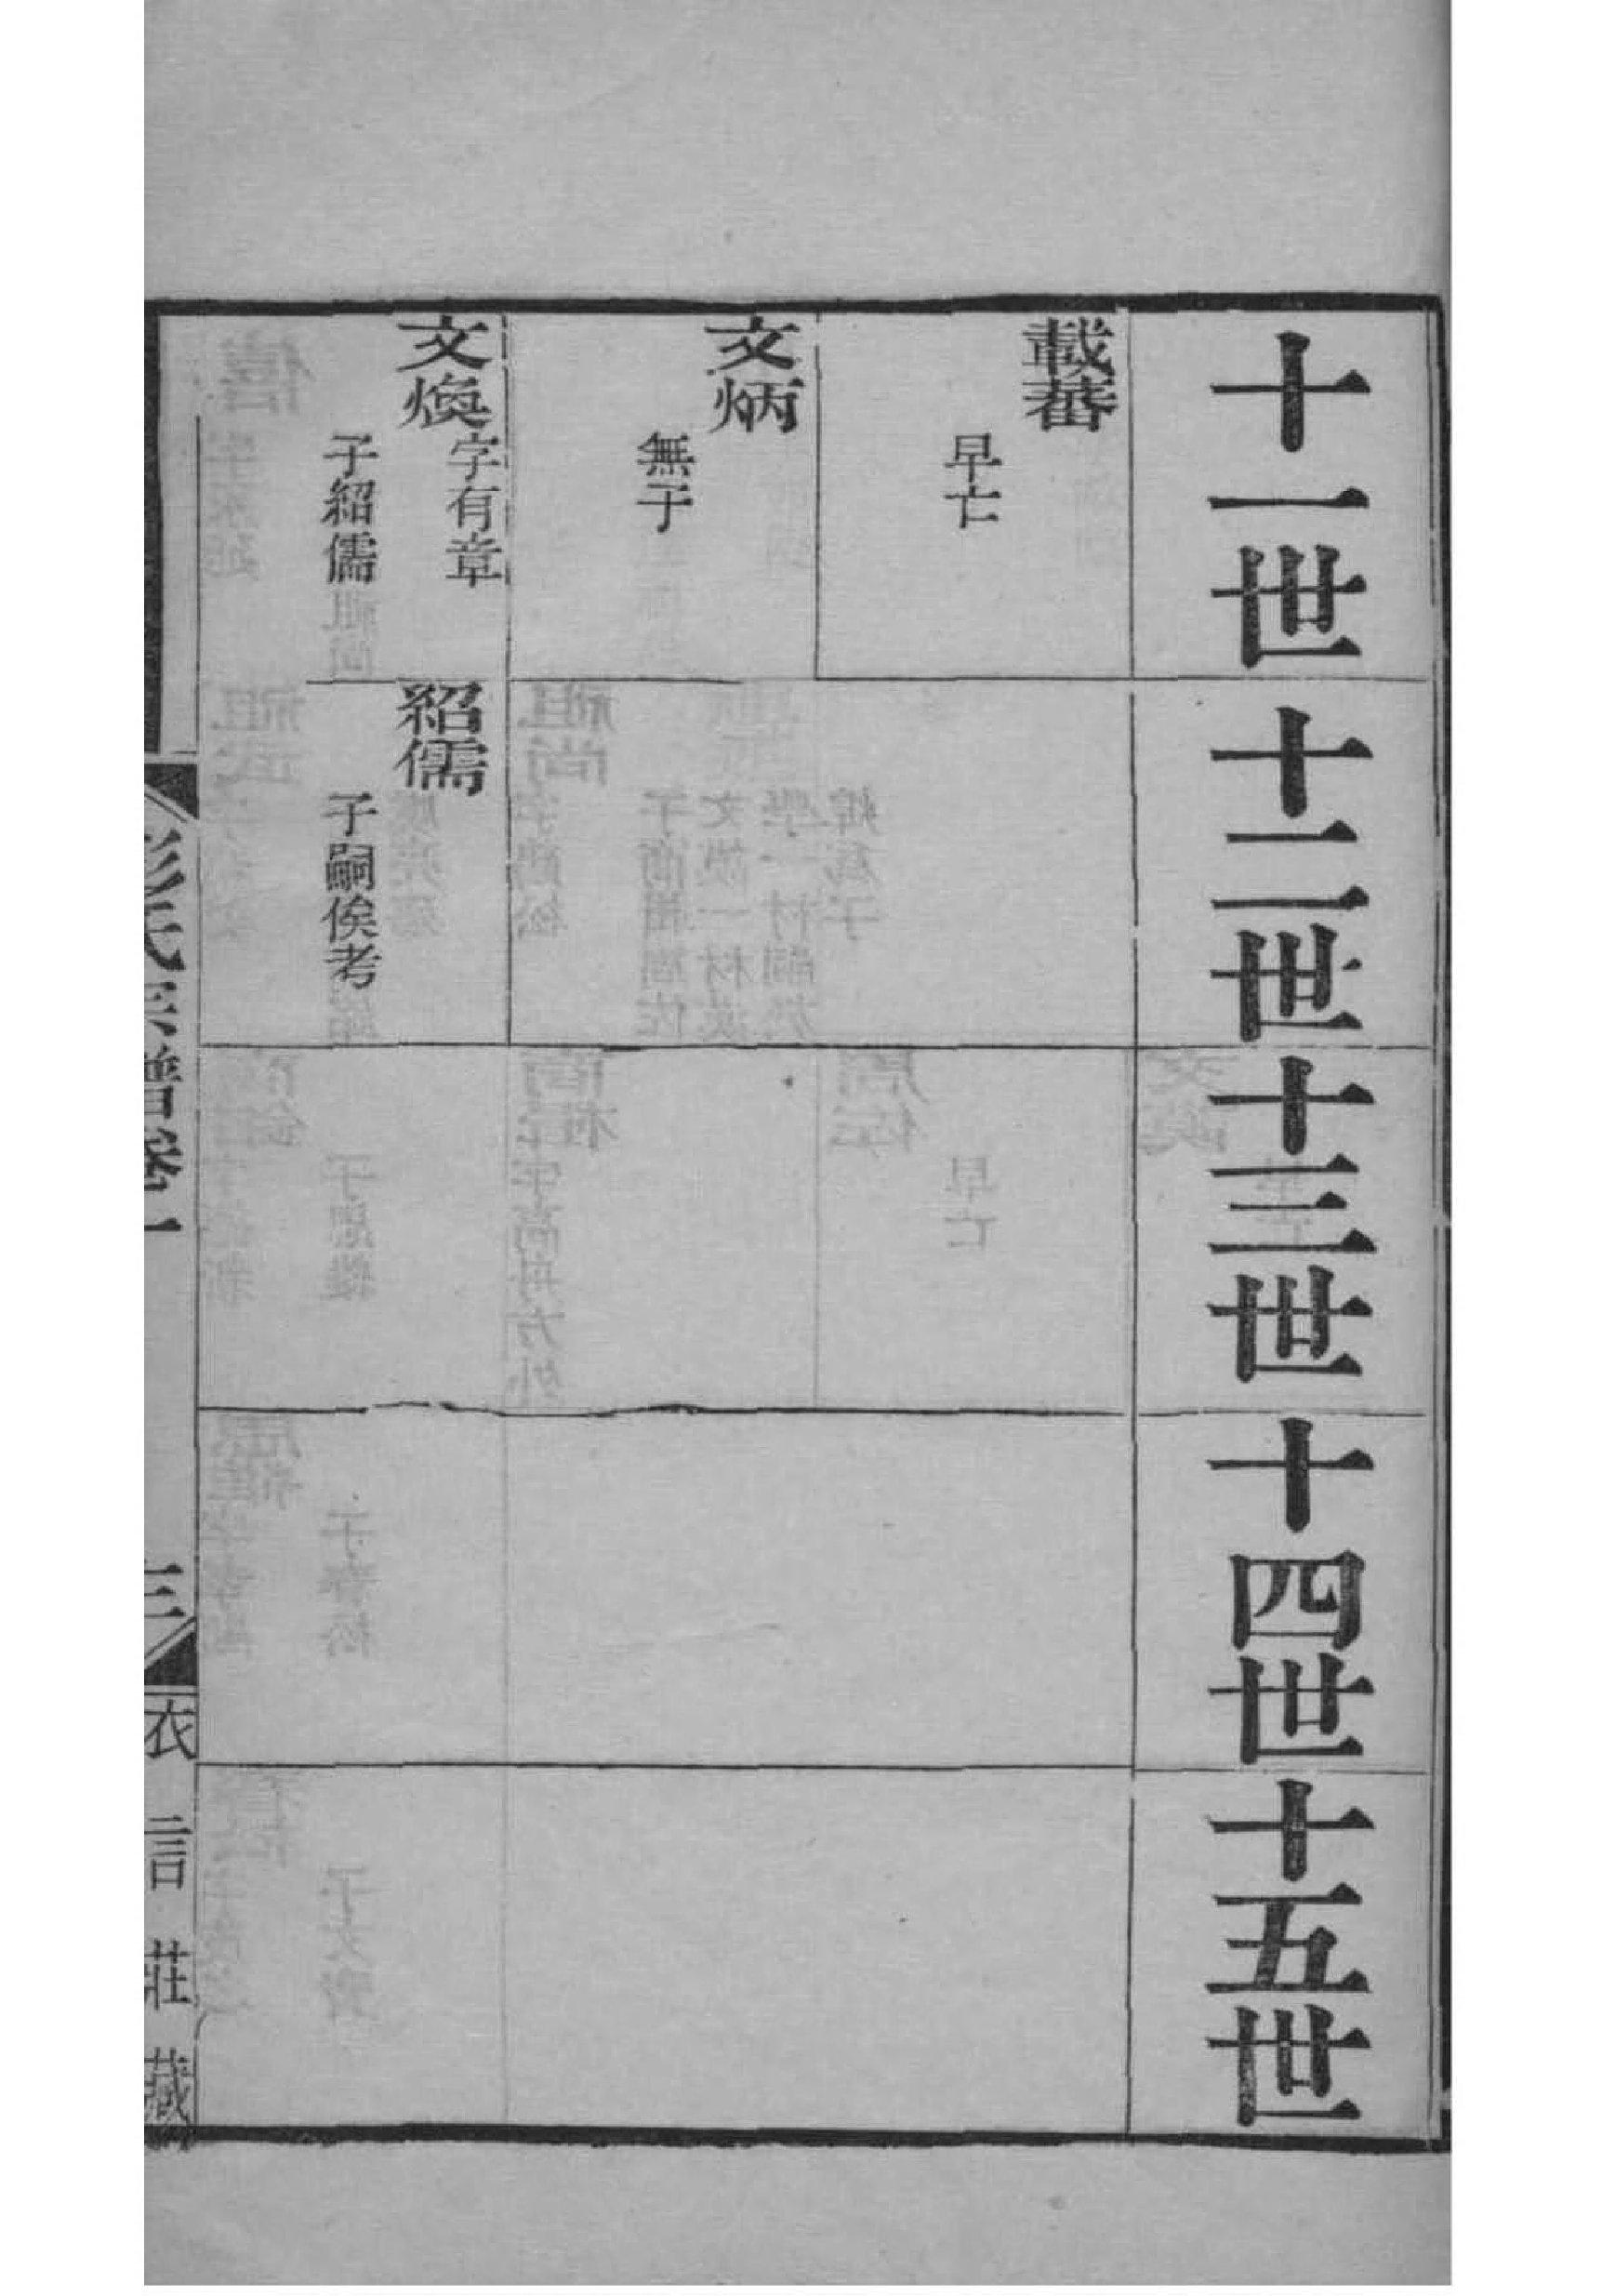 十一世
十二世
十三世
十四世
十五世
載蕃
早亡
文炳
無子
文煥
字有章
子紹儒
紹儒
子嗣俟考
彭氏宗譜卷一
三
衣言莊藏